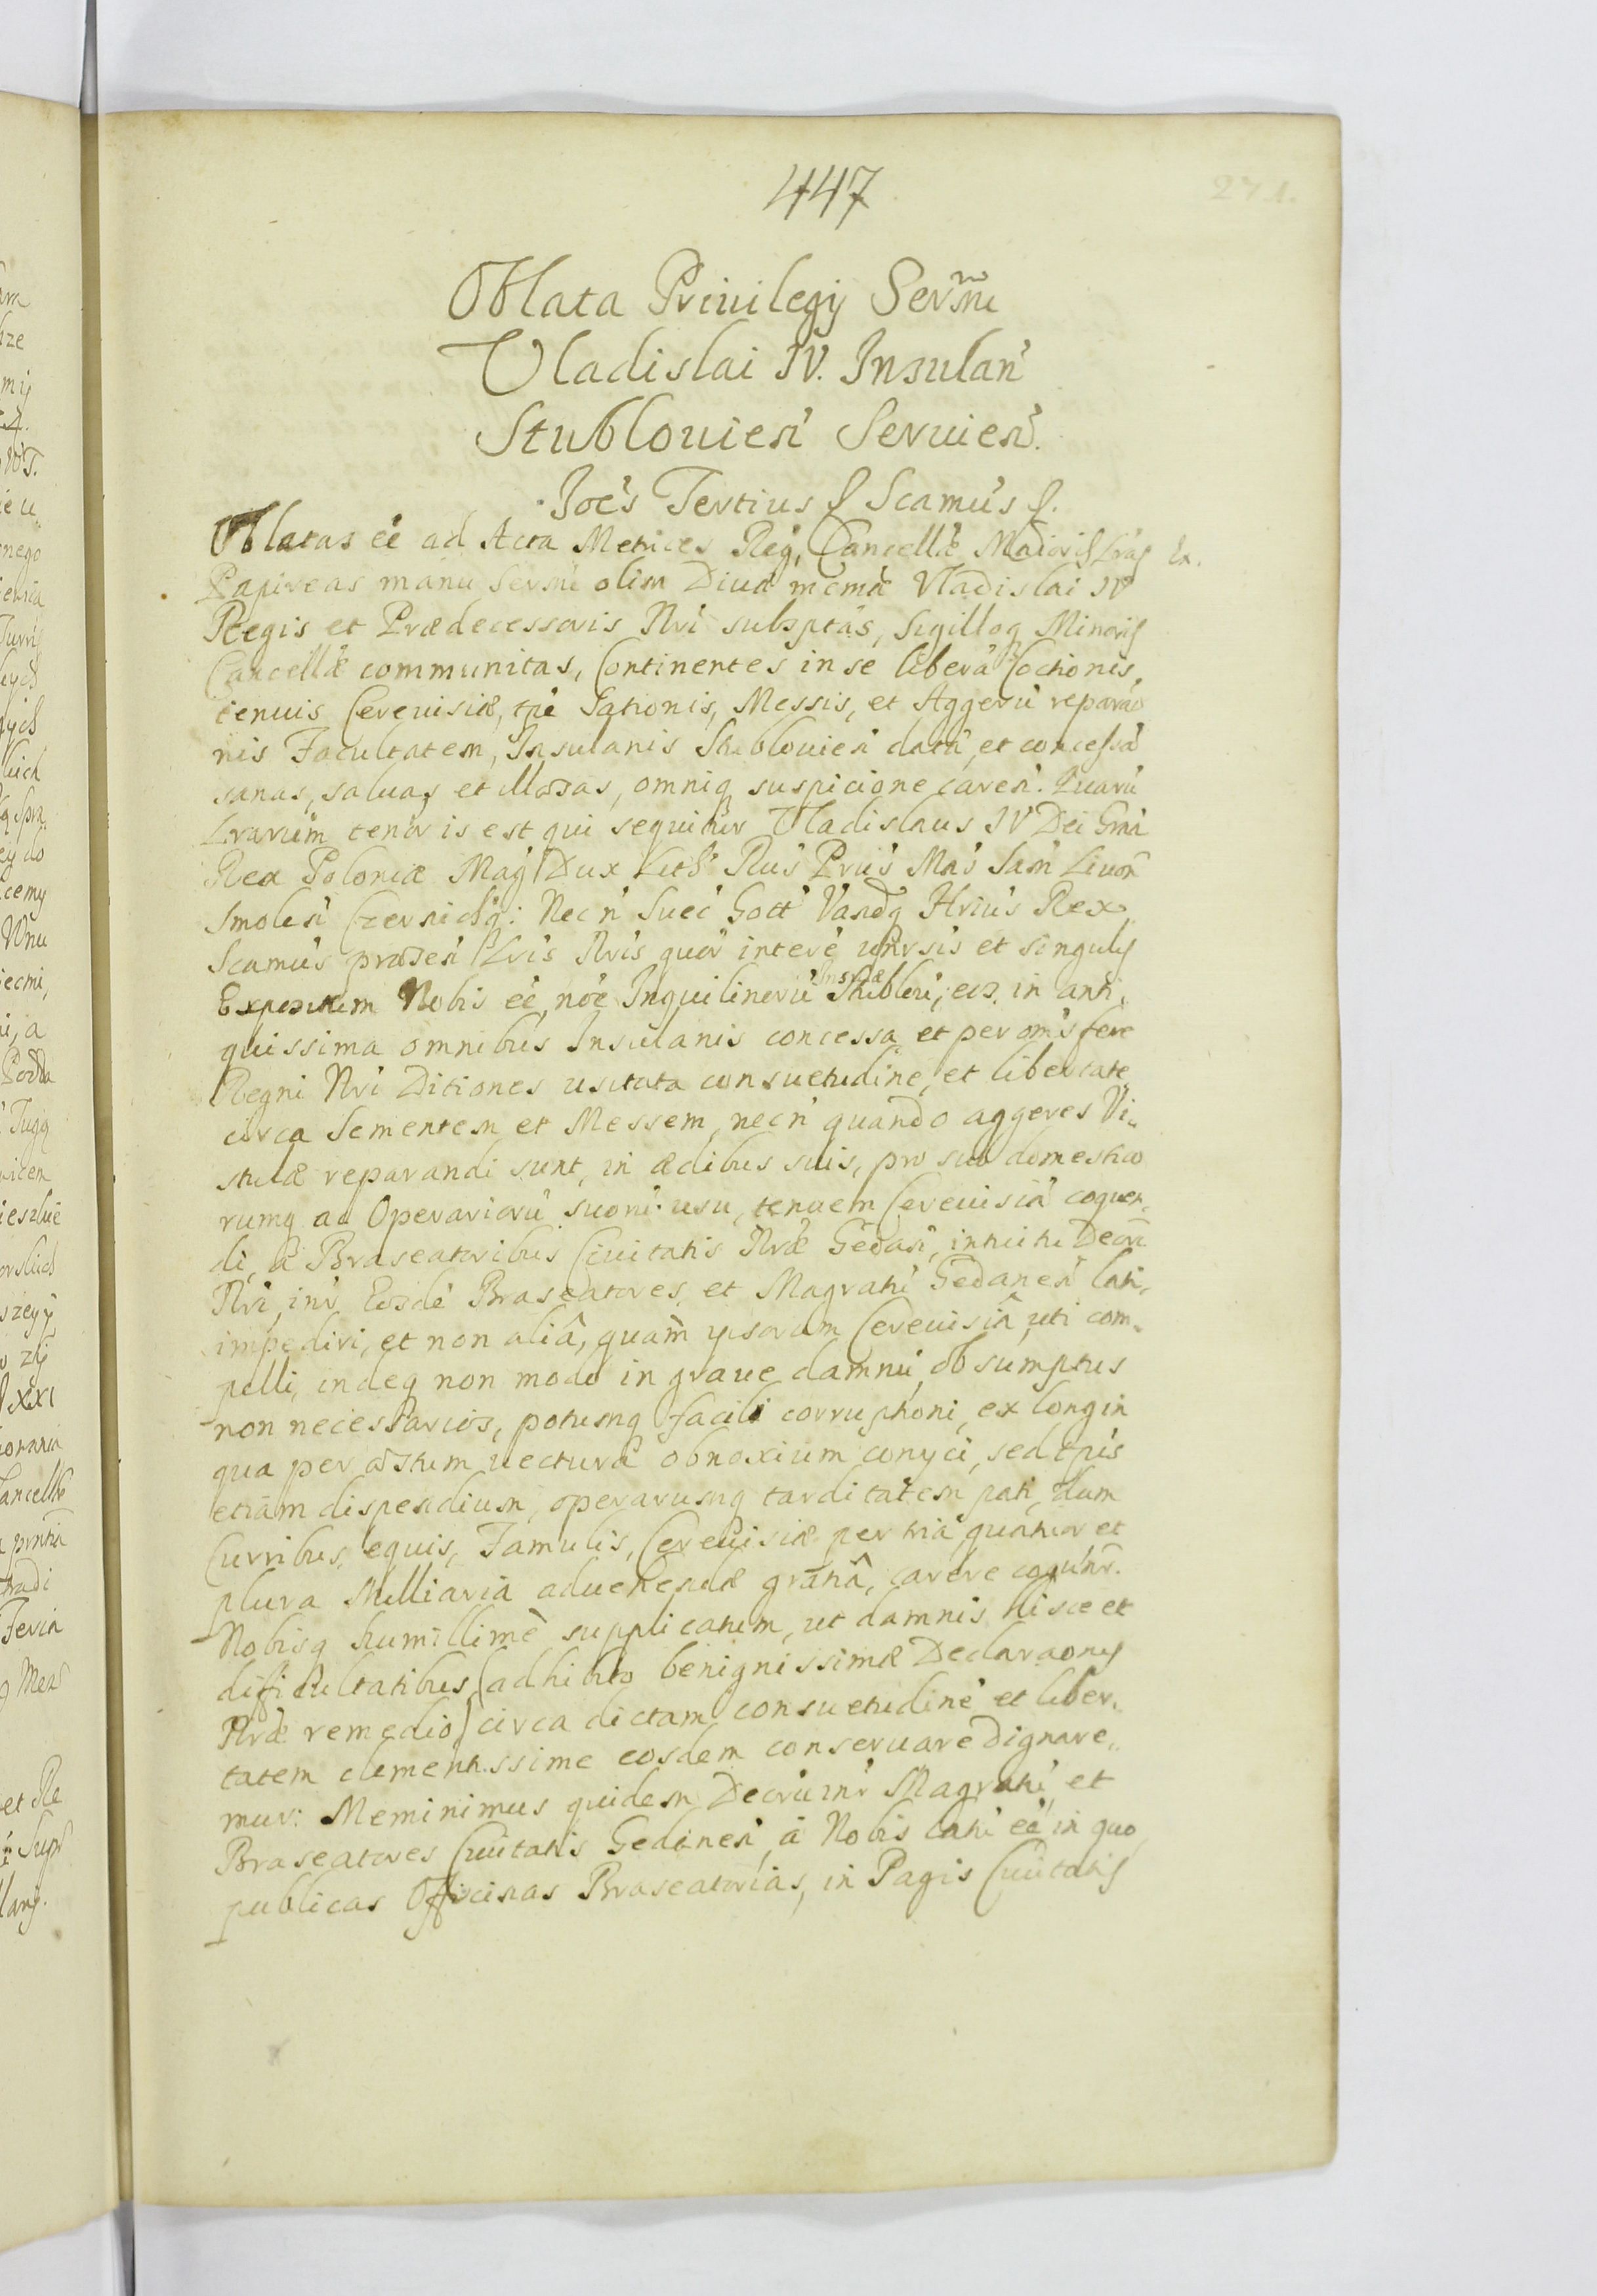 447
271.
Oblata Privilegij Sermi
Vladislai IV. Insulan
Stublouien Seruien.
Joes Tertius Scamus
Oblatas ee ad Acta Metrices Reg, Cancellæ Maioris Lras
Papireas manu Sermi olim Divæ memæ Vladislai IV
Regis et Prædecessoris Nri subsptas, Sigilloq Minoris
Cancellæ communitas, Continentes in se liberã Coctionis,
tenuis Cereuisiæ, tpe Sationis, Messis, et Aggerũ reparao
nis Facultatem, Insulanis Stublouien datã, et concessã
sanas, saluas et illæsas, omniq suspicione caren. Quarũ
Lrarum tenor is est qui sequitur Vladislaus IV Dei Gra
Rex Poloniæ Mag Dux Lith Rus Prus Mas Sam Liuon
Smolen Czernichq: Nec n Suec Gott Vandq Hrius Rex
Scamus præsen Lris Nris quor intere vnrsis et singulis
Expositum Nobis ee, noe Inquilinorũ Insulæ Stublou, eos in anti,
quissima omnibus Insulanis concessa et per oms fere
Regni Nri Ditiones usitata consuetudine, et libertate
circa Sementem et Messem, nec n quando aggeres Vi„
stulæ reparandi sunt, in ædibus suis, pro suo domestico
rumq ac Operariorũ suorũ usu, tenuem Cereuisiã coquen„
di, a Braseatoribus Ciuitatis Nræ Gedan, intuitu Decri
Nri, inr Eosde Braseatores, et Magratũ Gedanen lati,
impediri, et non aliâ, quàm ipsorum Cereuisiâ uti com„
pelli, indeq non modo in graue damnũ, ob sumptus
non necessarios, potumq facili corruptioni, ex longin
qua per æstum vecturâ obnoxium conijci, sed tpis
etiam dispendium, operarumq tarditatem pati, dum
Curribus, equis, Famulis, Cereuisiæ per tria, quatuor et
plura Milliaria aduehendæ gratiâ, carere cogunr.
Nobisq humillimè supplicatum, ut damnis hisce et
difficultatibus (adhibito benignissimæ Declaraonis
Nræ remedio) circa dictam consuetudinẽ et liber„
tatem clementissime eosdem conseruare dignare„
mur: Meminimus quidem Decrũ inr Magratũ et
Braseatores Ciuitatis Gedanen, a Nobis latũ ee, in quo
publicas Officinas Braseatorias, in Pagis Ciuitatis